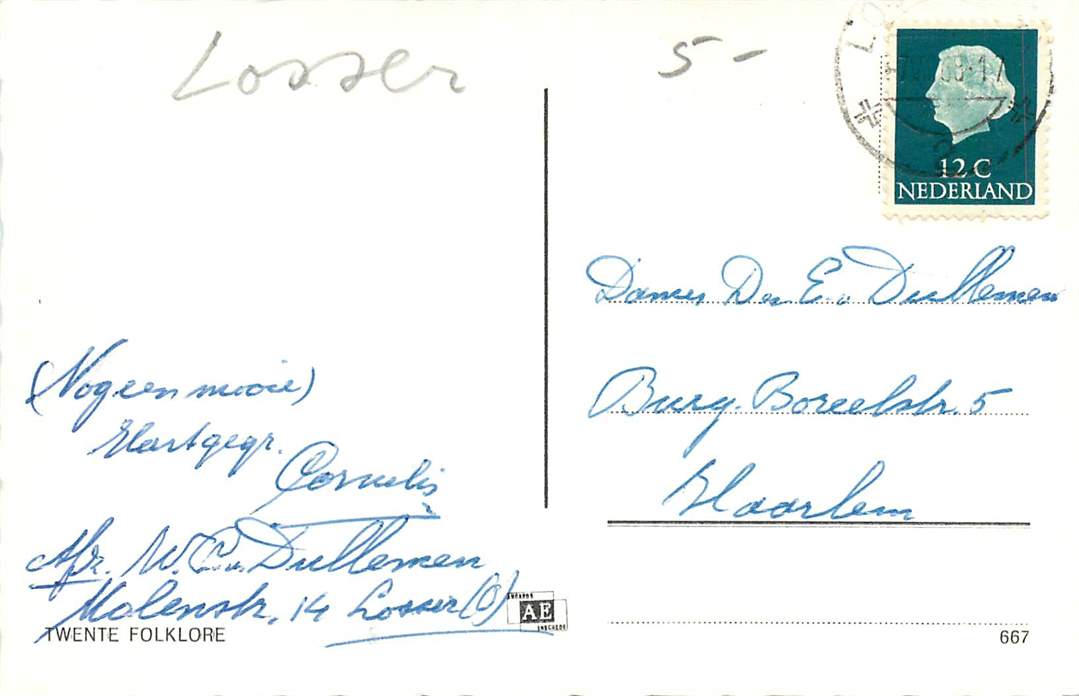 Losser
5-
12 C
NEDERLAND
(Nog een mooie)
Hartgegr.
Cornelis
Afz. W. C. v. Dullemen
Molenstr. 14 Losser (O)
TWENTE FOLKLORE
AE
ENSCHEDE
Dames E. v. Dullemen
Burg. Boreelstr. 5
Haarlem
667